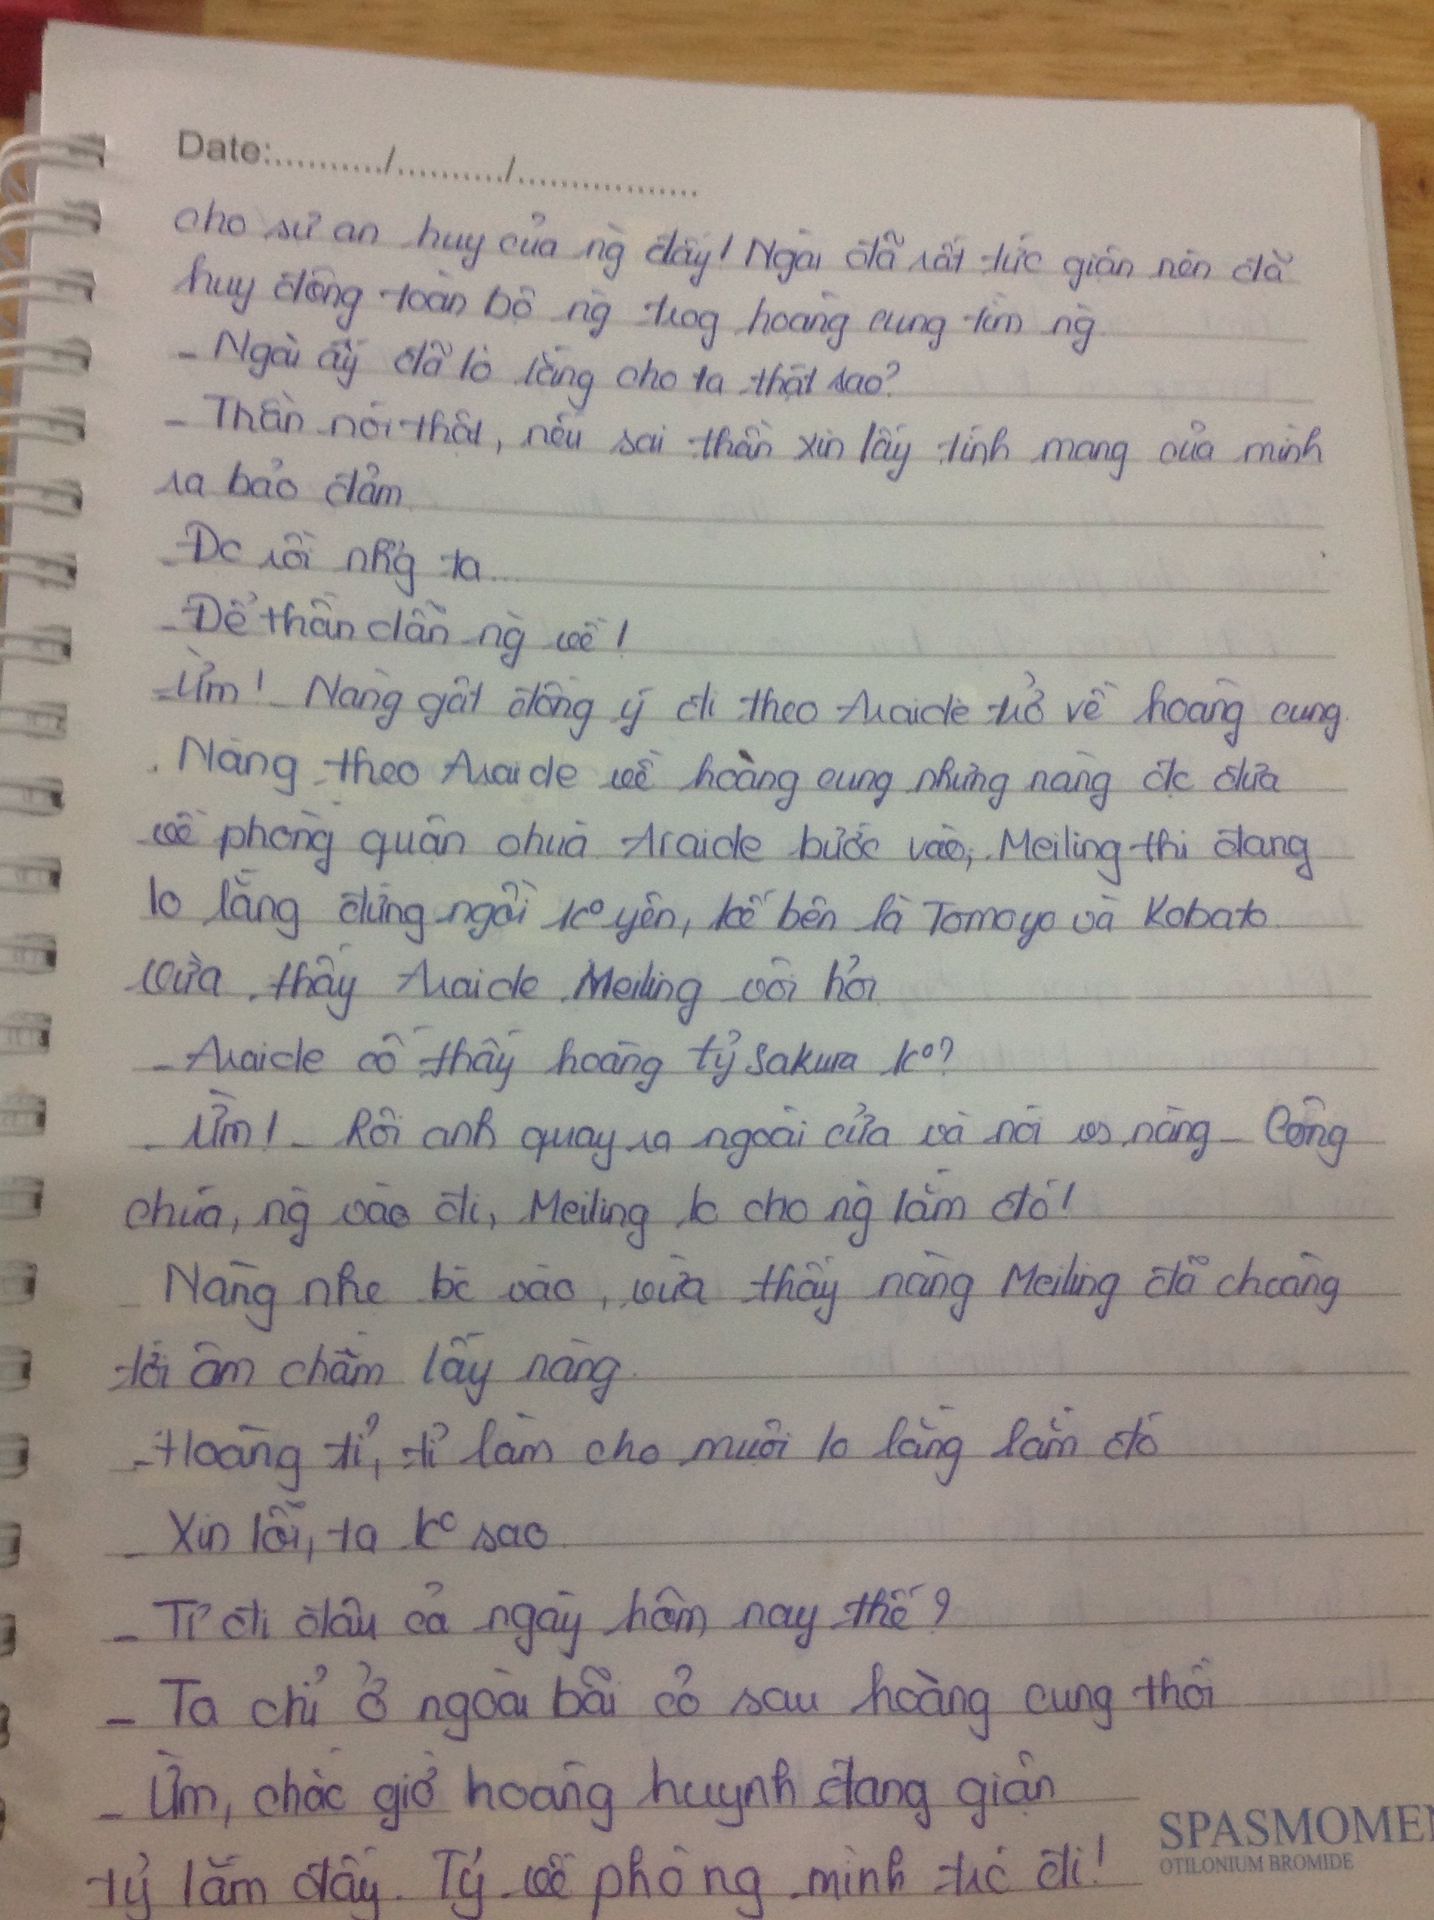 Date:........../........../................
cho sự an huy của ng` đấy! Ngài đã rất tức giận nên đã
huy động toàn bộ ng` trog hoàng cung tìm ng`
- Ngài ấy đã lo lắng cho ta thật sao?
- Thần nói thật, nếu sai thần xin lấy tính mạng của mình
ra bảo đảm
- Đc rồi nhưg ta...
- Để thần dẫn ng` về!
- Ừm! - Nàng gật đồng ý đi theo Araide trở về hoàng cung.
. Nàng theo Araide về hoàng cung nhưng nàng đc đưa
về phòng quận chúa. Araide bước vào, Meiling thì đang
lo lắng đứng ngồi k° yên, kế bên là Tomoyo và Kobato
vừa thấy Araide Meiling vội hỏi
- Araide có thấy hoàng tỷ Sakura k°?
- Ừm! - Rồi anh quay ra ngoài cửa và nói vs nàng - Công
chúa, ng` vào đi, Meiling lo cho ng` lắm đó!
Nàng nhẹ bc vào, vừa thấy nàng Meiling đã choàng
tới ôm chầm lấy nàng.
- Hoàng tỉ, tỉ làm cho muội lo lắng lắm đó
- Xin lỗi, ta k° sao.
- Tỉ đi đâu cả ngày hôm nay thế?
- Ta chỉ ở ngoài bãi cỏ sau hoàng cung thôi
- Ừm, chắc giờ hoàng huynh đang giận
tỷ lắm đấy. Tỷ về phòng mình trc đi!
SPASMOMEN
OTILONIUM BROMIDE